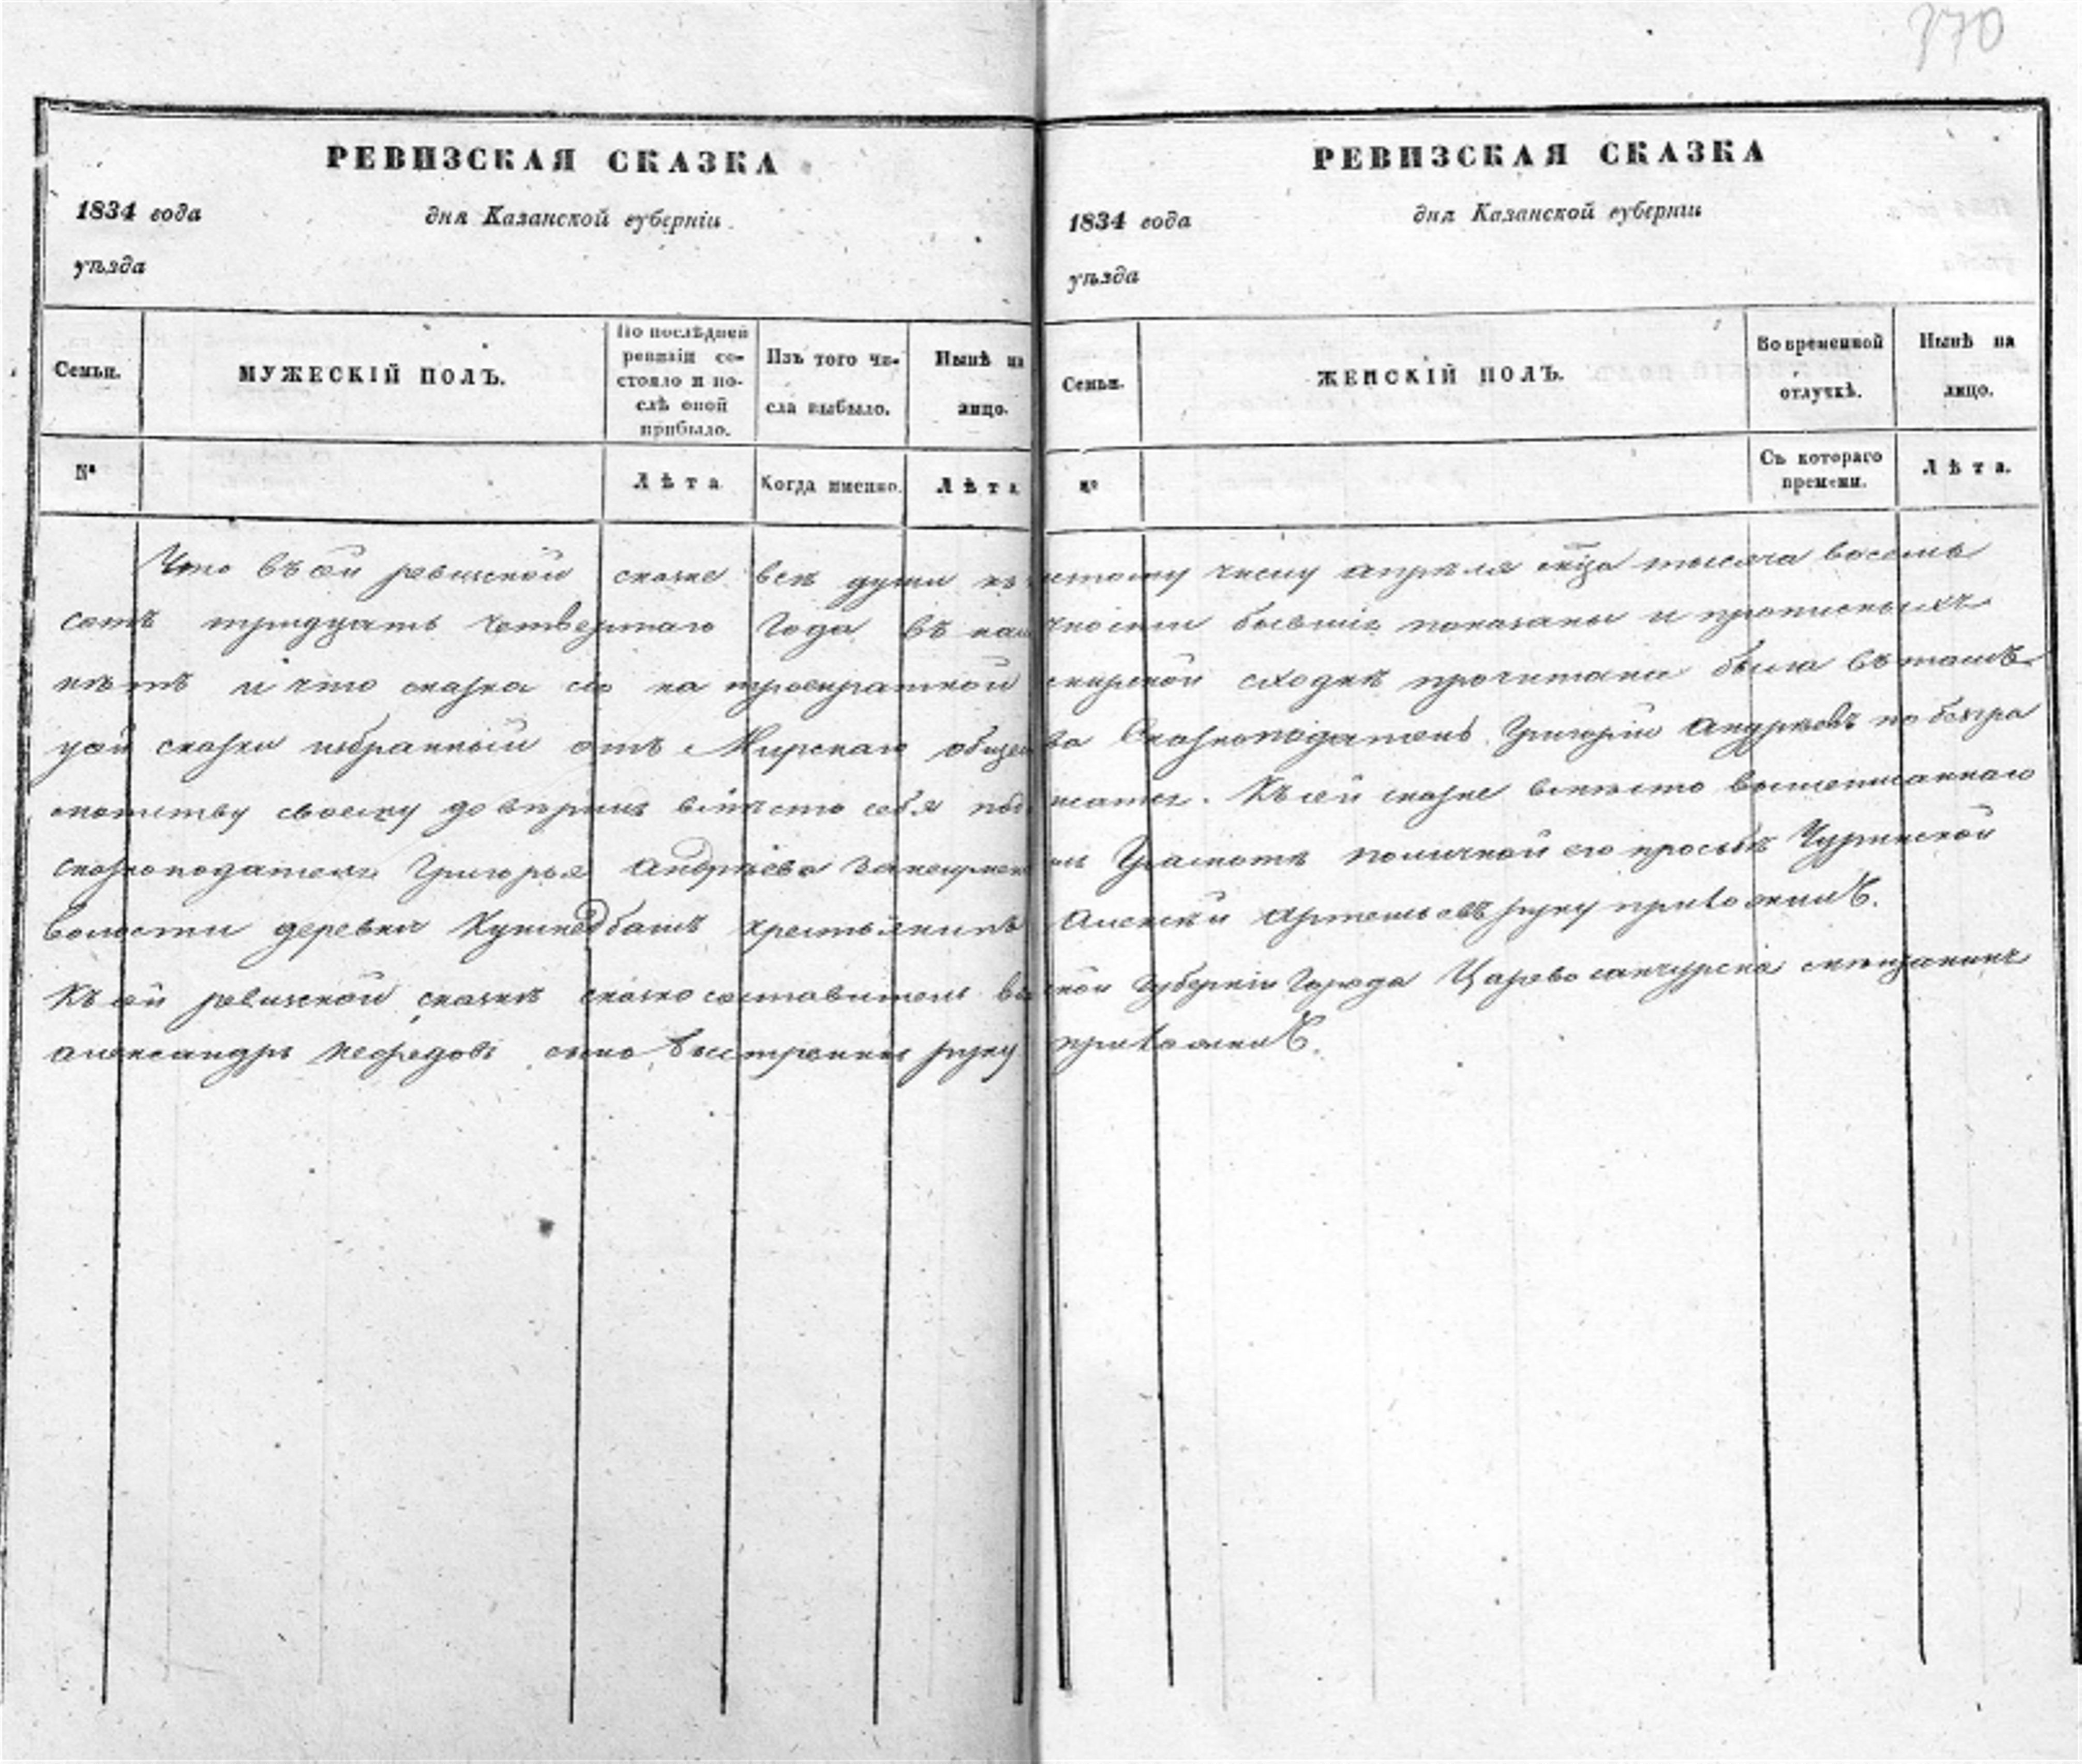 370
РЕВИЗСКАЯ СКАЗКА
1834 года дня Казанской губерніи
уѣзда
Семьи.
МУЖЕСКІЙ ПОЛЪ.
По послѣдней
ревизіи со-
стояло и по-
слѣ оной
прибыло.
Изъ того чи-
сла выбыло.
Нынѣ на
лицо.
№
Лѣта
Когда именно.
Лѣта
РЕВИЗСКАЯ СКАЗКА
1834 года дня Казанской губерніи
уѣзда
Семьи.
ЖЕНСКІЙ ПОЛЪ.
Во временной
отлучкѣ.
Нынѣ на
лицо.
Съ котораго
времени.
Лѣта.
Что въ сей ревизской сказке всѣ души числу апрѣля мца тысяча восемь
сотъ тридцать четвертаго года въ бывшіе показаны и прописныхъ
нѣтъ и что сказка сія на троекратной мирской сходкѣ прочитана была
сказки избранный отъ Мирскаго Сказкоподатель Григорій Андреевъ по безгра
мотству своему доверилъ вмѣсто себя К сей сказке вместо вышеписаннаго
сказкоподателя Григорья Андрѣева Грамотѣ поличной его просьбѣ
волости деревни крестьянинъ Алексѣй руку приложилЪ.
Къ сей ревизской сказкѣ сказкосоставитель губерніи Города Царевосанчурска мѣщанинъ
александръ сынъ руку приложилЪ.